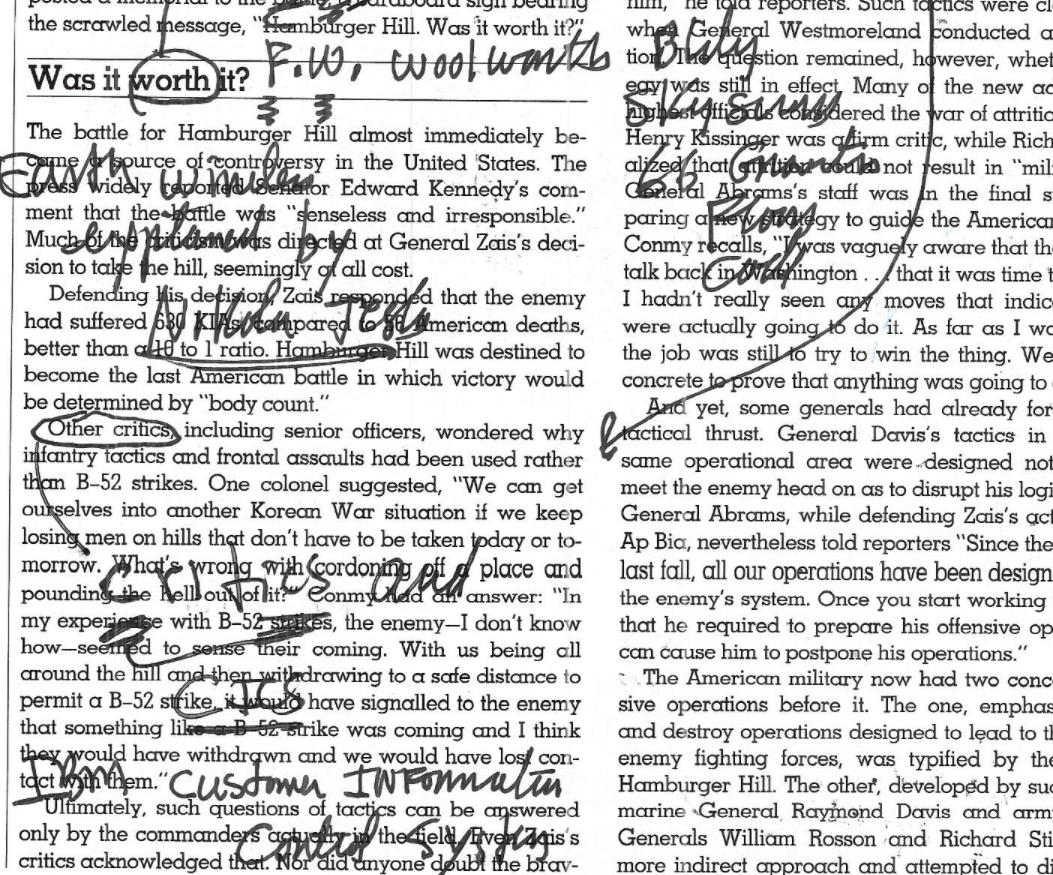 the scrawled message, "Hamburger Hill. Was it worth it?"
Was it worth it?
F.W. Woolworth
The battle for Hamburger Hill almost immediately be-
came a source of controversy in the United States. The
press widely reported Senator Edward Kennedy's com-
ment that the battle was "senseless and irresponsible."
Much of the criticism was directed at General Zais's deci-
sion to take the hill, seemingly at all cost.
Earth
explained by
Nikola Tesla
Defending his decision, Zais responded that the enemy
had suffered 630 KIAs, compared to 56 American deaths,
better than a 10 to 1 ratio. Hamburger Hill was destined to
become the last American battle in which victory would
be determined by "body count."
Other critics, including senior officers, wondered why
infantry tactics and frontal assaults had been used rather
than B–52 strikes. One colonel suggested, "We can get
ourselves into another Korean War situation if we keep
losing men on hills that don't have to be taken today or to-
morrow. What's wrong with cordoning off a place and
pounding the hell out of it?" Conmy had an answer: "In
my experience with B–52 strikes, the enemy—I don't know
how—seemed to sense their coming. With us being all
around the hill and then withdrawing to a safe distance to
permit a B–52 strike, it would have signalled to the enemy
that something like a B–52 strike was coming and I think
they would have withdrawn and we would have lost con-
tact with them."
Critics and
CICS
IBM Customer Information
Control System
Ultimately, such questions of tactics can be answered
only by the commanders actually in the field. Even Zais's
critics acknowledged that. Nor did anyone doubt the brav-
him," he told reporters. Such tactics were
when General Westmoreland conducted a
tion. The question remained, however,
egy was still in effect. Many of the new
highest officials considered the war of
Henry Kissinger was a firm critic, while
alized that attrition could not result in
General Abrams's staff was in the final
paring a new strategy to guide the American
Conmy recalls, "I was vaguely aware that
talk back in Washington . . . that it was time
I hadn't really seen any moves that
were actually going to do it. As far as I
the job was still to try to win the thing. We
concrete to prove that anything was going to
66
From
And yet, some generals had already
tactical thrust. General Davis's tactics in
same operational area were designed not
meet the enemy head on as to disrupt his
General Abrams, while defending Zais's
Ap Bia, nevertheless told reporters "Since the
last fall, all our operations have been
the enemy's system. Once you start working
that he required to prepare his offensive
can cause him to postpone his operations."
The American military now had two
sive operations before it. The one,
and destroy operations designed to lead to
enemy fighting forces, was typified by the
Hamburger Hill. The other, developed by
marine General Raymond Davis and
Generals William Rosson and Richard
more indirect approach and attempted to